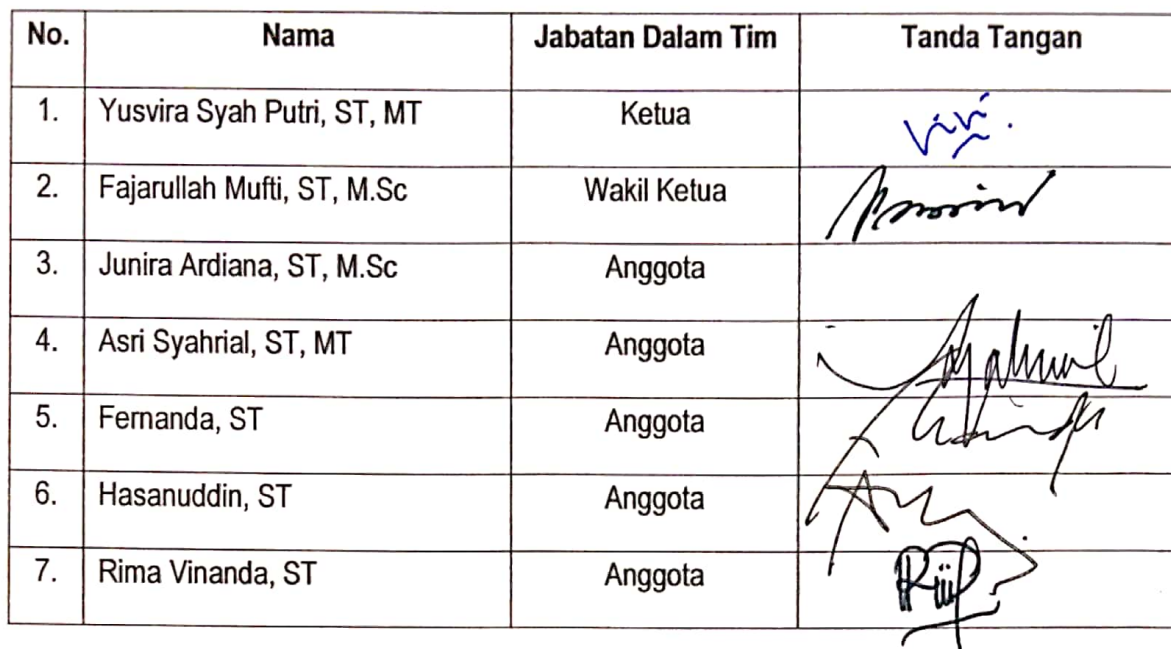 No. Nama Jabatan Dalam Tim Tanda Tangan
1. Yusvira Syah Putri, ST, MT Ketua Vivi.
2. Fajarullah Mufti, ST, M.Sc Wakil Ketua
3. Junira Ardiana, ST, M.Sc Anggota
4. Asri Syahrial, ST, MT Anggota
5. Fernanda, ST Anggota
6. Hasanuddin, ST Anggota
7. Rima Vinanda, ST Anggota